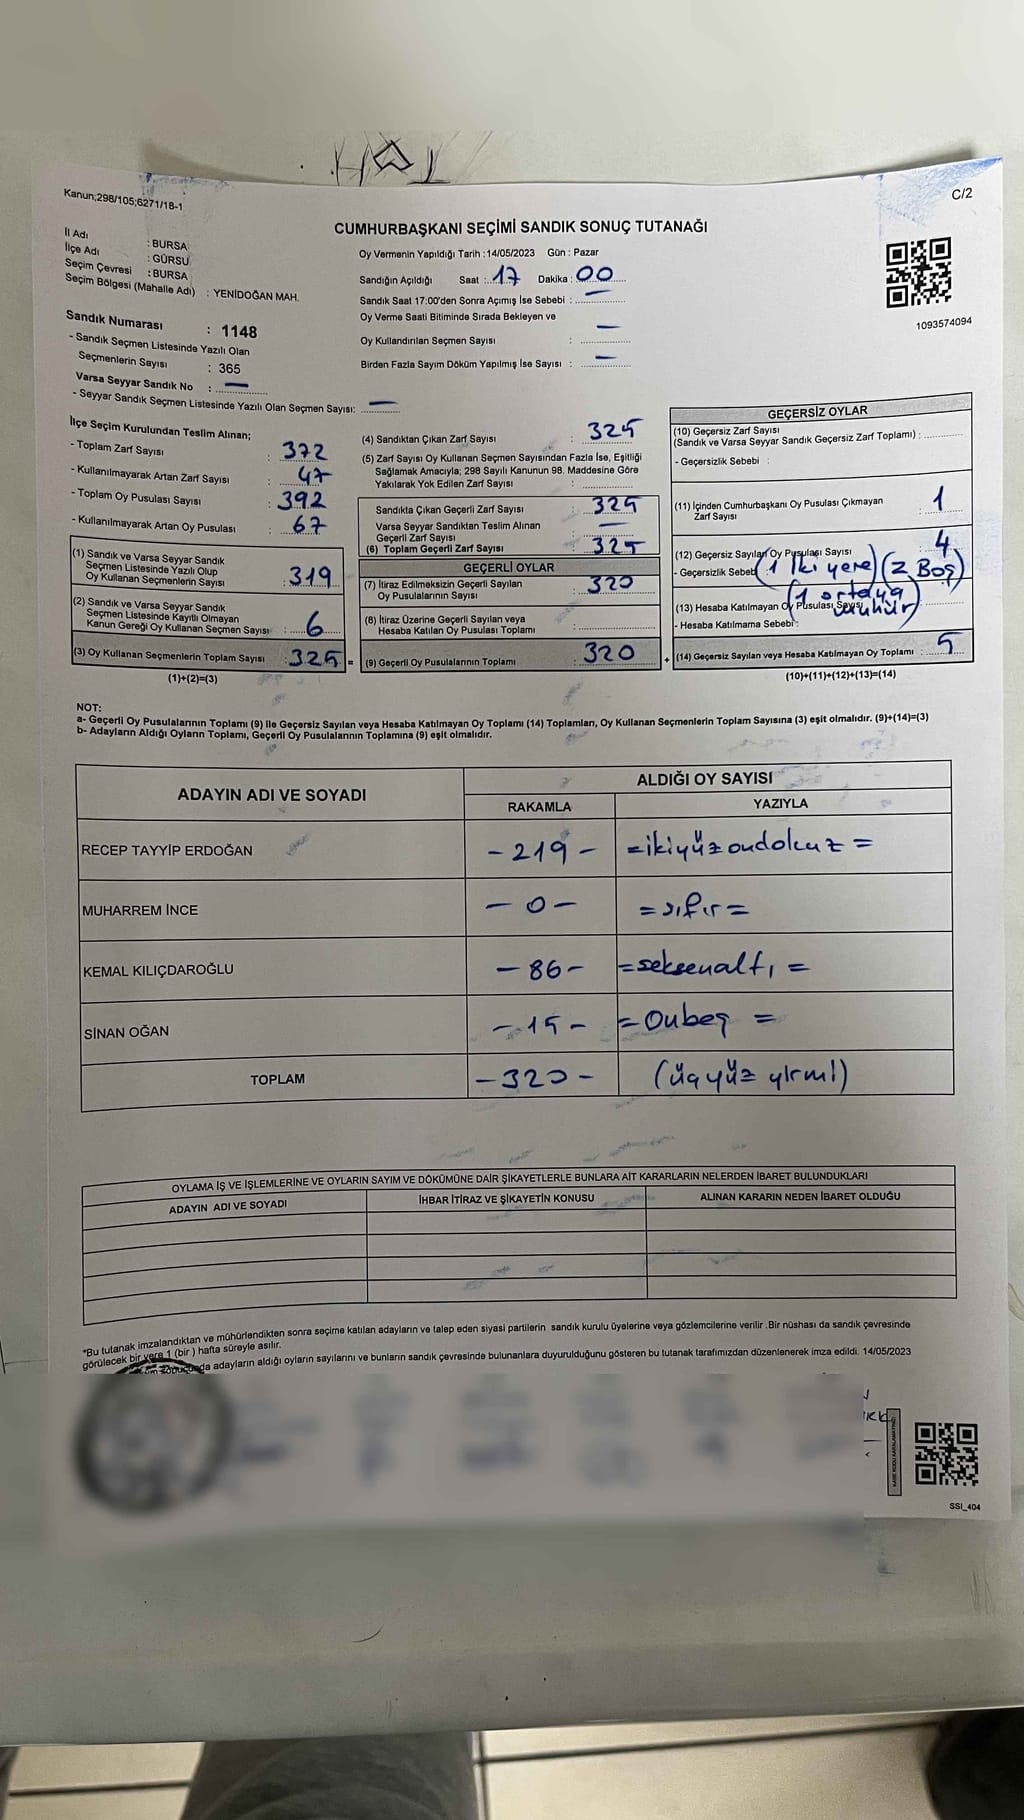 Kanun;298/105;6271/18-1
C/2
CUMHURBAŞKANI SEÇİMİ SANDIK SONUÇ TUTANAĞI
İl Adı : BURSA
İlçe Adı : GÜRSU
Seçim Çevresi : BURSA
Seçim Bölgesi (Mahalle Adı) : YENİDOĞAN MAH.
Sandık Numarası : 1148
- Sandık Seçmen Listesinde Yazılı Olan
Seçmenlerin Sayısı : 365
Varsa Seyyar Sandık No : —
- Seyyar Sandık Seçmen Listesinde Yazılı Olan Seçmen Sayısı: —
Oy Vermenin Yapıldığı Tarih : 14/05/2023 Gün : Pazar
Sandığın Açıldığı Saat : 17 Dakika : 00
Sandık Saat 17:00'den Sonra Açımış İse Sebebi : —
Oy Verme Saati Bitiminde Sırada Bekleyen ve
Oy Kullandırılan Seçmen Sayısı : —
Birden Fazla Sayım Döküm Yapılmış İse Sayısı : —
1093574094
İlçe Seçim Kurulundan Teslim Alınan;
- Toplam Zarf Sayısı : 372
- Kullanılmayarak Artan Zarf Sayısı : 47
- Toplam Oy Pusulası Sayısı : 392
- Kullanılmayarak Artan Oy Pusulası : 67
(1) Sandık ve Varsa Seyyar Sandık
Seçmen Listesinde Yazılı Olup
Oy Kullanan Seçmenlerin Sayısı : 319
(2) Sandık ve Varsa Seyyar Sandık
Seçmen Listesinde Kayıtlı Olmayan
Kanun Gereği Oy Kullanan Seçmen Sayısı : 6
(3) Oy Kullanan Seçmenlerin Toplam Sayısı : 325 =
(1)+(2)=(3)
(4) Sandıktan Çıkan Zarf Sayısı : 325
(5) Zarf Sayısı Oy Kullanan Seçmen Sayısından Fazla İse, Eşitliği
Sağlamak Amacıyla; 298 Sayılı Kanunun 98. Maddesine Göre
Yakılarak Yok Edilen Zarf Sayısı :
Sandıkta Çıkan Geçerli Zarf Sayısı : 325
Varsa Seyyar Sandıktan Teslim Alınan
Geçerli Zarf Sayısı : —
(6) Toplam Geçerli Zarf Sayısı : 325
GEÇERLİ OYLAR
(7) İtiraz Edilmeksizin Geçerli Sayılan
Oy Pusulalarının Sayısı : 320
(8) İtiraz Üzerine Geçerli Sayılan veya
Hesaba Katılan Oy Pusulası Toplamı :
(9) Geçerli Oy Pusulalarının Toplamı : 320 +
GEÇERSİZ OYLAR
(10) Geçersiz Zarf Sayısı
(Sandık ve Varsa Seyyar Sandık Geçersiz Zarf Toplamı) :
- Geçersizlik Sebebi :
(11) İçinden Cumhurbaşkanı Oy Pusulası Çıkmayan
Zarf Sayısı : 1
(12) Geçersiz Sayılan Oy Pusulası Sayısı : 4
- Geçersizlik Sebebi (1 İki yere) (2 Boş)
(1 ortaya mühür)
(13) Hesaba Katılmayan Oy Pusulası Sayısı :
- Hesaba Katılmama Sebebi :
(14) Geçersiz Sayılan veya Hesaba Katılmayan Oy Toplamı : 5
(10)+(11)+(12)+(13)=(14)
NOT:
a- Geçerli Oy Pusulalarının Toplamı (9) ile Geçersiz Sayılan veya Hesaba Katılmayan Oy Toplamı (14) Toplamları, Oy Kullanan Seçmenlerin Toplam Sayısına (3) eşit olmalıdır. (9)+(14)=(3)
b- Adayların Aldığı Oyların Toplamı, Geçerli Oy Pusulalarının Toplamına (9) eşit olmalıdır.
ADAYIN ADI VE SOYADI
ALDIĞI OY SAYISI
RAKAMLA YAZIYLA
RECEP TAYYİP ERDOĞAN - 219 - = ikiyüzondokuz =
MUHARREM İNCE - 0 - = sıfır =
KEMAL KILIÇDAROĞLU - 86 - = seksenaltı =
SİNAN OĞAN - 15 - = Onbeş =
TOPLAM - 320 - (üçyüz yirmi)
OYLAMA İŞ VE İŞLEMLERİNE VE OYLARIN SAYIM VE DÖKÜMÜNE DAİR ŞİKAYETLERLE BUNLARA AİT KARARLARIN NELERDEN İBARET BULUNDUKLARI
ADAYIN ADI VE SOYADI İHBAR İTİRAZ VE ŞİKAYETİN KONUSU ALINAN KARARIN NEDEN İBARET OLDUĞU
*Bu tutanak imzalandıktan ve mühürlendikten sonra seçime katılan adayların ve talep eden siyasi partilerin sandık kurulu üyelerine veya gözlemcilerine verilir .Bir nüshası da sandık çevresinde
görülecek bir yere 1 (bir ) hafta süreyle asılır.
adayların aldığı oyların sayılarını ve bunların sandık çevresinde bulunanlara duyurulduğunu gösteren bu tutanak tarafımızdan düzenlenerek imza edildi. 14/05/2023
SSI_404